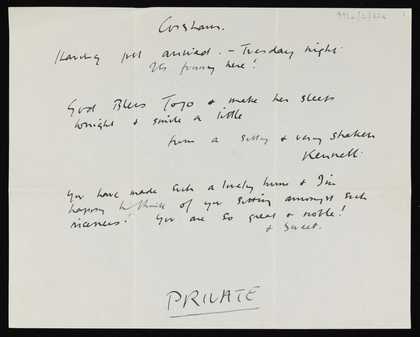 Corsham.
Having just arrived. – Tuesday night.
Its funny here!
God Bless Togo & make her sleep
tonight & smile a little
from a silly & very shaken
Kenneth.
You have made such a lovely home & I'm
happy to think of you sitting amongst such
niceness! You are so great & noble!
& sweet.
PRIVATE